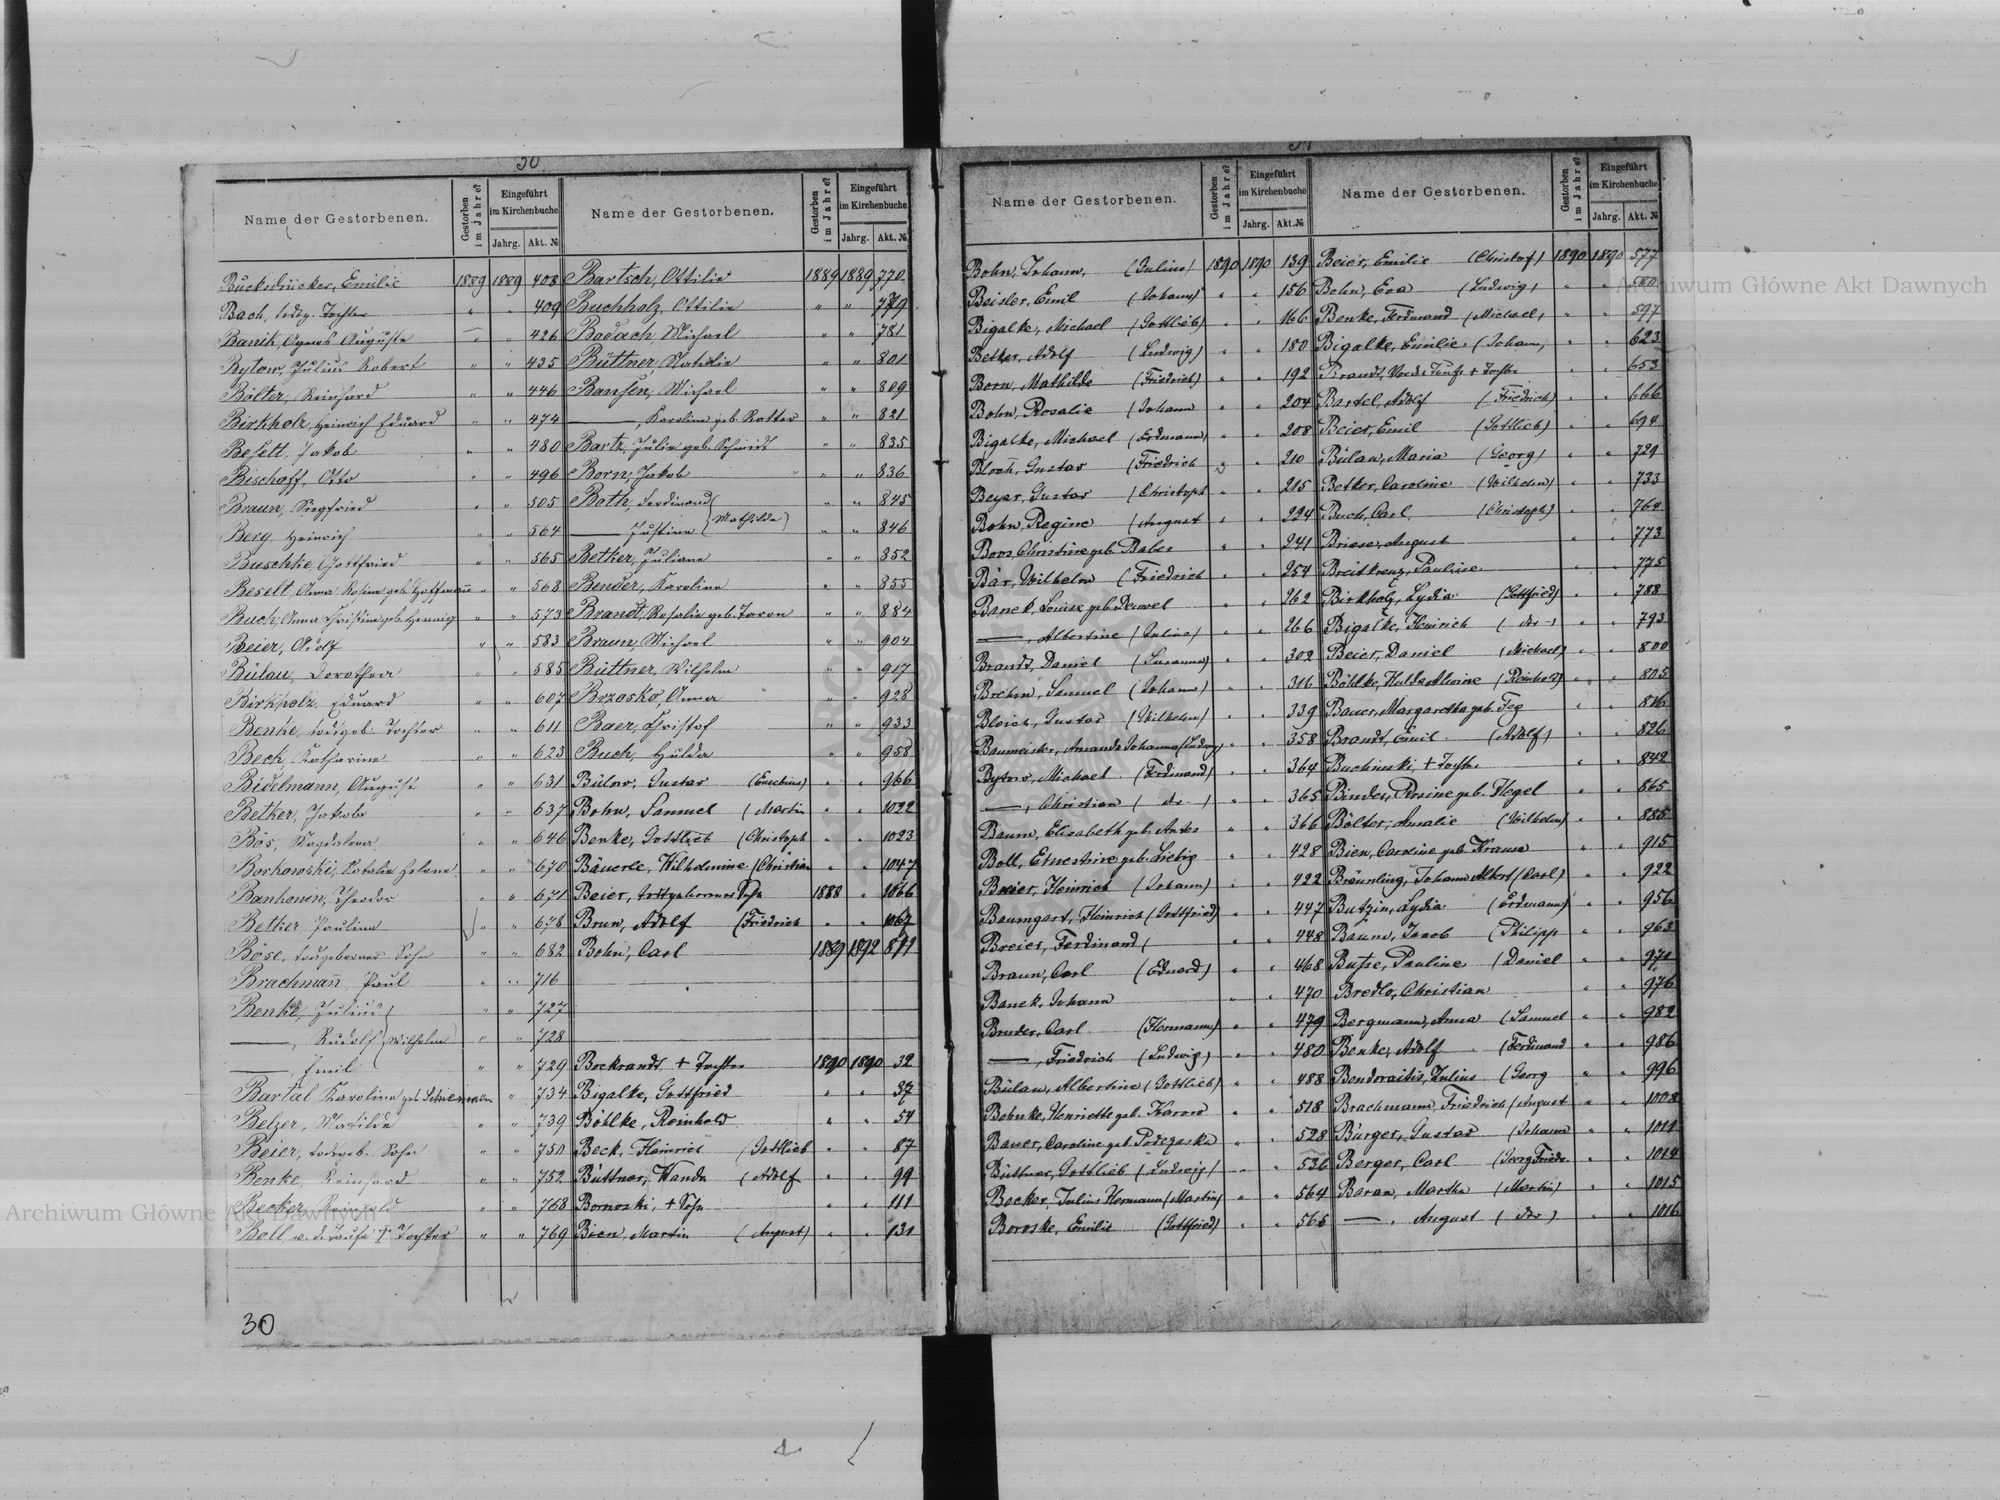 30
Name der Gestorbenen. Gestorben im Jahre? Eingeführt im Kirchenbuche Jahrg. Akt. №
Buchdrucker, Emilie 1889 1889 408
Bach, todtg. Tochter " " 409
Banik, Agnes Auguste " " 426
Bytow, Julius Robert " " 435
Bölter, Reinhard " " 446
Birkholz, Heinrich Eduard " " 474
Beselt, Jakob " " 480
Bischoff, Otto " " 496
Braun, Siegfried " " 505
Berg, Heinrich " " 564
Buschke, Gottfried " " 565
Beselt, Anna Rosine geb. Hoffmann " " 568
Buch, Anna Christine geb. Hennig " " 573
Beier, Adolf " " 583
Bülau, Dorothea " " 585
Birkholz, Eduard " " 607
Benke, todtgeb. Tochter " " 611
Beck, Katharina " " 623
Bidelmann, August " " 631
Bether, Jakob " " 637
Bös, Magdalena " " 646
Borkowski, Natalie Helene " " 670
Banhonin, Theodor " " 671
Bether Pauline " " 678
Böse, todtgeborner Sohn " " 682
Brachmann, Paul " " 716
Benke, Julius " " 727
——, Rudolf (Wilhelm " " 728
——, Emil " " 729
Bartal Karoline geb. " " 734
Belzer, Matilde " " 739
Beier, todtgeb. Sohn " " 750
Benke, Reinhard " " 752
Becker, Reinhold " " 768
Boll v. d. Taufe † Tochter " " 769
30
Name der Gestorbenen. Gestorben im Jahre? Eingeführt im Kirchenbuche Jahrg. Akt. №
Bartsch, Ottilie 1889 1889 770
Buchholz, Ottilie " " 779
Badach, Michael " " 781
Büttner, Natalie " " 801
Bansen, Michael " " 809
——, Karoline geb. Ratter " " 821
Bartz, Julie geb. Schmidt " " 835
Born, Jakob " " 836
Both, Ferdinand " " 845
—— Justine (Mathilde) " " 846
Bether, Juliane " " 852
Bender, Karoline " " 855
Brandt, Rosalie geb. Taron " " 884
Braun, Michael " " 904
Büttner, Wilhelm " " 917
Brzosko, Anna " " 928
Baer, Christof " " 933
Buch, Hulda " " 958
Bülow, Gustav (Eusebius) " " 966
Bohn, Samuel (Martin " " 1022
Benke, Gottlieb (Christoph " " 1023
Bäuerle, Wilhelmine (Christian " " 1047
Beier, todtgeborner Sohn 1888 " 1066
Brun, Adolf (Friedrich " " 1067
Bohn, Carl 1889 1892 811
Bockrandt † Tochter 1890 1890 32
Bigalke, Gottfried " " 37
Böhlke, Reinhold " " 54
Beck, Heinrich (Gottlieb " " 87
Büttner, Wanda (Adolf " " 99
Bornoski, † Sohn " " 111
Bien, Martin (August) " " 131
31
Name der Gestorbenen. Gestorben im Jahre? Eingeführt im Kirchenbuche Jahrg. Akt. №
Bohn, Johann, (Julius) 1890 1890 139
Beisler, Emil (Johann) " " 156
Bigalke, Michael (Gottlieb) " " 166
Betker, Adolf (Ludwig) " " 180
Born, Mathilde (Friedrich) " " 192
Bohn, Rosalie (Johann " " 204
Bigalke, Michael (Erdmann) " " 208
Bloch, Gustav (Friedrich " " 210
Beyer, Gustav (Christoph " " 215
Bohn, Regine (August " " 224
Boos, Christine geb. Baber " " 241
Bär, Wilhelm (Friedrich " " 254
Banek, Louise geb. Deuvel " " 262
——, Albertine (Julius) " " 266
Brandt, Daniel (Susanna) " " 302
Brehm, Samuel (Johann) " " 316
Bloich, Gustav (Wilhelm) " " 339
Baumeister, Amanda Johanna (Ludwig) " " 358
Bytow, Michael (Ferdinand) " " 364
——, Christian (do) " " 365
Baum, Elisabeth geb. " " 366
Boll, Ernestine geb. Liebig " " 428
Beier, Heinrich (Johann) " " 422
Baumgart, Heinrich (Gottfried) " " 447
Breier, Ferdinand ( " " 448
Braun, Carl (Eduard) " " 468
Banek, Johann " " 470
Bruder, Carl (Hermann) " " 479
——, Friedrich (Ludwig) " " 480
Bülau, Albertine (Gottlieb) " " 488
Bohnke, Henriette geb. " " 518
Bauer, Caroline geb. " " 528
Büttner, Gottlieb (Ludwig) " " 536
Becker, Julius Hermann (Martin) " " 564
Boroske, Emilie (Gottfried) " " 565
Name der Gestorbenen. Gestorben im Jahre? Eingeführt im Kirchenbuche Jahrg. Akt. №
Beier, Emilie (Christof) 1890 1890 577
Bohn, Eva (Ludwig) " " 580
Benke, Ferdinand (Michael) " " 597
Bigalke, Emilie (Johann) " " 623
Brandt, Vor der Taufe † Tochter " " 653
Bartel, Adolf (Friedrich) " " 666
Beier, Emil (Gottlieb) " " 694
Bülau, Maria (Georg) " " 729
Betker, Caroline (Wilhelm) " " 733
Buch, Carl (Christoph) " " 764
Briese, August " " 773
Breitkreuz, Pauline " " 775
Birkholz, Lydia (Gottfried) " " 788
Bigalke, Heinrich (do) " " 793
Beier, Daniel (Michael) " " 800
Böhlke, Hulda Alwine (Reinhold) " " 805
Bauer, Margaretha geb. " " 816
Brandt, Emil (Adolf) " " 826
Buchinski, † Tochter " " 842
Binder, Rosine geb. Hegel " " 865
Bölter, Amalie (Wilhelm) " " 885
Bien, Caroline geb. Krause " " 915
Bräunling, Johann Albert (Carl) " " 922
Butzin, Lydia (Erdmann) " " 956
Baum, Jacob (Philipp " " 963
Busse, Pauline (Daniel " " 971
Bredlo, Christian " " 976
Bergmann, Anna (Samuel " " 982
Benke, Adolf (Ferdinand " " 986
Bendoraitis, Julius (Georg " " 996
Brachmann, Friedrich (August " " 1008
Bürger, Gustav (Johann " " 1011
Berger, Carl (Georg Friedr. " " 1014
Baran, Martha (Martin) " " 1015
——, August (do) " " 1016
Archiwum Główne Akt Dawnych
Archiwum Główne Akt Dawnych